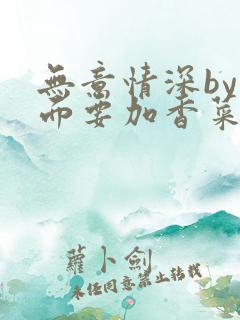 無意情深by
而要加香菜
蘿卜劍
未经同意禁止转载